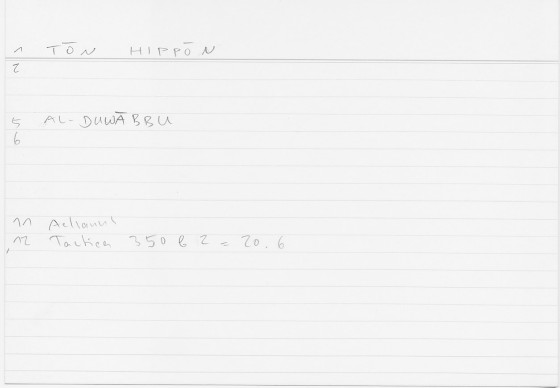 1 TŌN HIPPŌN
2
5 AL-DUWĀBBU
6
11 Aeliani
12 Tactica 350 b 2 = 20.6